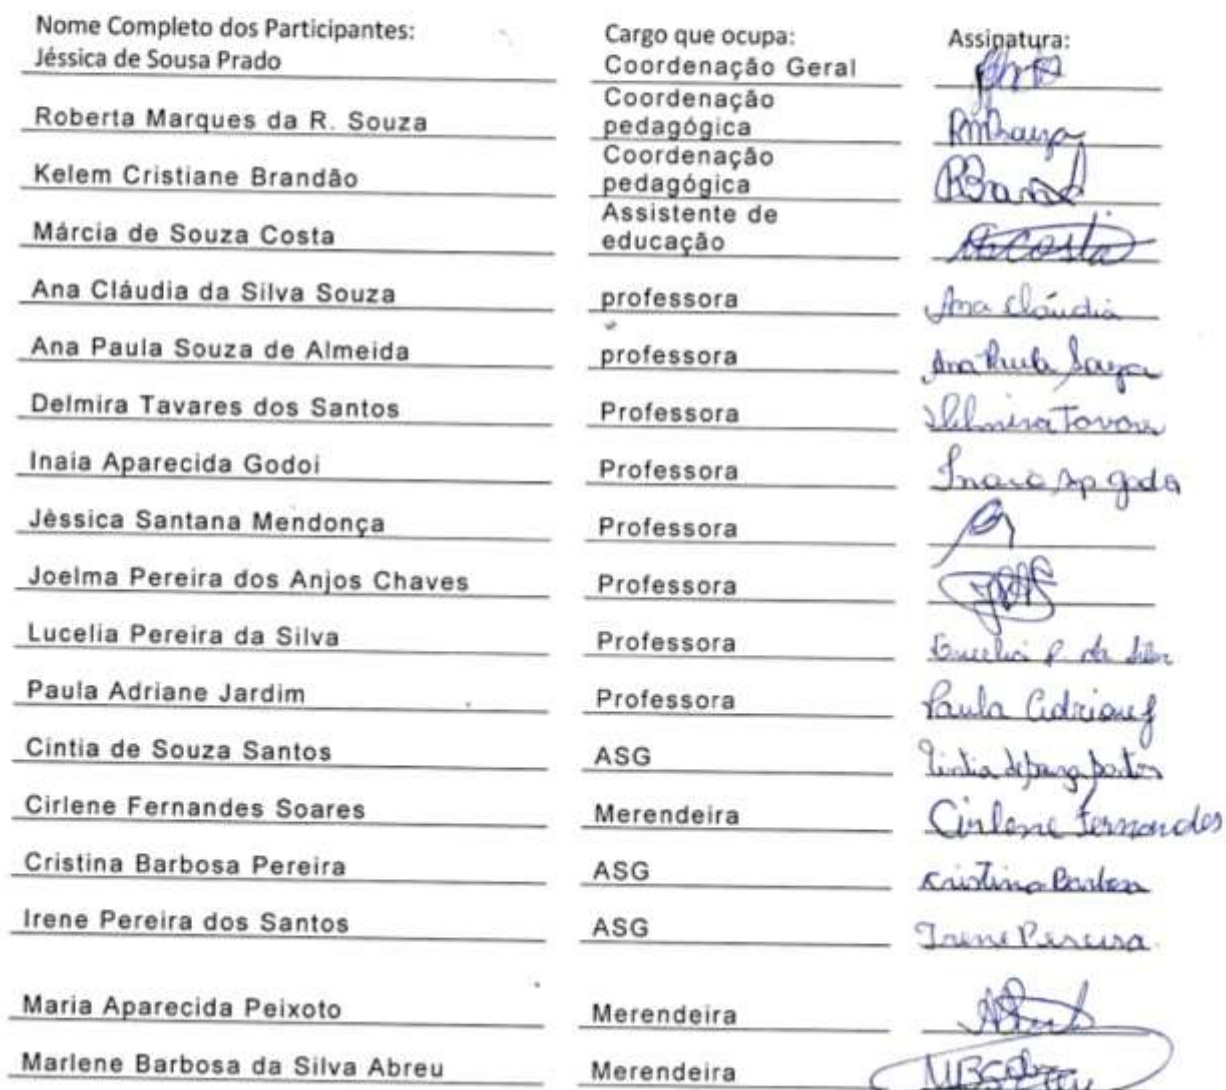 Nome Completo dos Participantes: Cargo que ocupa: Assinatura:
Jéssica de Sousa Prado Coordenação Geral
Roberta Marques da R. Souza Coordenação pedagógica
Kelem Cristiane Brandão Coordenação pedagógica
Márcia de Souza Costa Assistente de educação Costa
Ana Cláudia da Silva Souza professora Ana Cláudia
Ana Paula Souza de Almeida professora Ana Paula Souza
Delmira Tavares dos Santos Professora Delmira Tavares
Inaia Aparecida Godoi Professora Inaia Ap Godoi
Jèssica Santana Mendonça Professora
Joelma Pereira dos Anjos Chaves Professora
Lucelia Pereira da Silva Professora Lucelia P. da Silva
Paula Adriane Jardim Professora Paula Adriane J
Cintia de Souza Santos ASG Cintia de Souza Santos
Cirlene Fernandes Soares Merendeira Cirlene Fernandes
Cristina Barbosa Pereira ASG Cristina Barbosa
Irene Pereira dos Santos ASG Irene Pereira
Maria Aparecida Peixoto Merendeira
Marlene Barbosa da Silva Abreu Merendeira